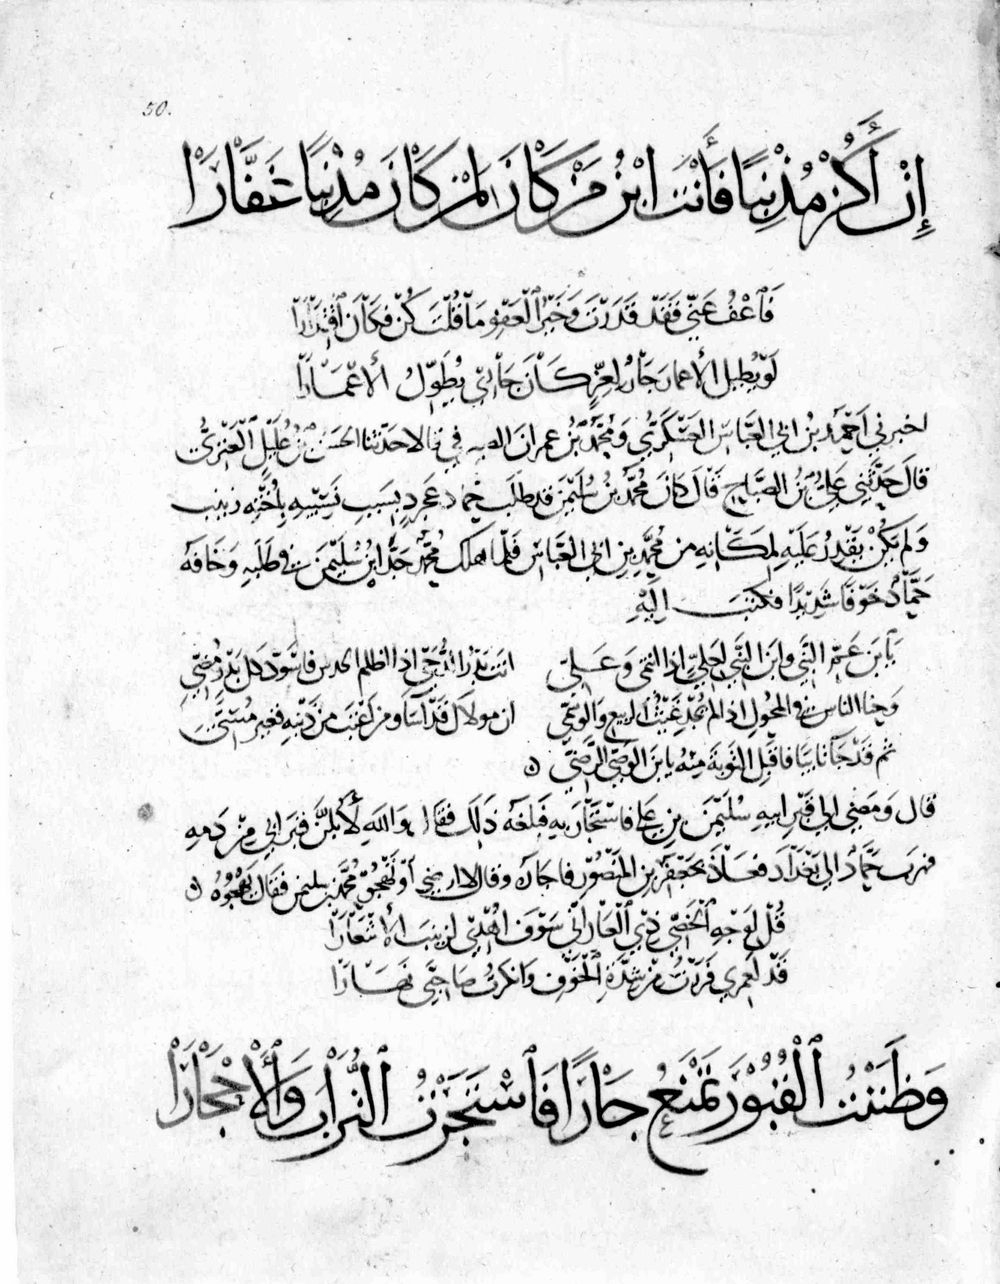 50.
إِنْ أَكُنْ مُذْنِبًا فَأَنْتَ ابْنُ مَنْ كَانَ لِمَنْ كَانَ مُذْنِبًا غَفَّارَا
فَاعْفُ عَنِّي فَقَدْ قَدَرْتَ وَخَيْرُ الْعَفْوِ مَا قُلْتَ كُنْ فَكَانَ اقْتِدَارَا
لَوْ يُطِيلُ الأَعْمَارَ جَارٌ لِعِزٍّ كَانَ جَارِي يُطَوِّلُ الأَعْمَارَا
اخبرني أحْمَدُ بْنُ ابي العَبَّاسِ العَسْكَرِيُّ وَمُحَمَّدُ بْنُ عِمرانَ الصيرفي قالا حَدّثنا الحسَن بْنُ عُلَيْلٍ الْعَنَزِيُّ
قال حَدَّثَنِي عَلِيُّ بْنُ الصَّبَّاحِ قَالَ كَانَ مُحَمَّدُ بْنُ سُلَيْمٰن قد طلَب حَمّاد عَجرَدٍ بِسَبَبِ تَشْبِيْبِهِ بِأُخْتِه زينب
وَلَمْ يَكُنْ يَقْدِرُ عَلَيْهِ لِمَكَانِهِ من مُحَمَّدِ بنِ ابي العَبَّاسِ فَلَمّا هَلَك مُحَمَّدٌ جَدَّ ابنُ سُلَيْمٰنَ في طَلَبِهِ وَخَافَهُ
حَمَّادٌ خَوْفًا شَدِيْدًا فَكَتَبَ الَيْهِ
يَا بْنَ عَمِّ النَّبيِّ وابنَ النَّبيِّ لِعَلِيٍّ اذا انتمى وَعَلِيِّ انت بَدْرُ الدُّجَى اذا اظلم فاسْوَدَّ كل بَدْرٍ مُضِيّ
وَحَيَا الناسِ في المُحُولِ اذا لم يُجْدِ غَيْثُ الربيع والوَسْمِيّ ان مولاكَ قَدْ أسَاءَ ومن اعْتَبَ من ذَنْبِهِ فغير مُسِيّ
ثم قَدْ جَاءَ تائبًا فاقْبَلِ التوبَةَ مِنْهُ يا بنَ الوَصِيِّ الرَّضِيّ
قال وَمَضى الى قَبْرِ ابيهِ سُلَيْمٰنَ بن عَلِيٍّ فاسْتَجَارَ بِهِ فَبَلَغَهُ ذٰلِكَ فقال واللهِ لأَبُلَّنَّ قبرَ ابي مِنْ دَمِهِ
فهَرَبَ حَمَّادٌ الى بَغْدَادَ فعَاذَ بجَعْفَرِ بنِ المَنْصُوْرِ فاجَارَهُ وقال لا ارضى أوْ تَهْجُوَ مُحَمَّدَ بن سليمن فقال يَهْجُوْهُ
قُلْ لِوَجْهِ الْخَصِيِّ ذِي الْعَارِ انّي سَوْفَ اُهْدِي لِزينبَ الأَشْعَارَا
قَدْ لَعَمْرِي فَرَرْتُ مِنْ شِدَّةِ الْخَوْفِ وَانكَرْتُ صَاحِبَيَّ نَهَارَا
وَظَنَنْتُ الْقُبُوْرَ تَمْنَعُ جَارًا فَاسْتَجَرْتُ التُّرَابَ وَالأَحْجَارَا